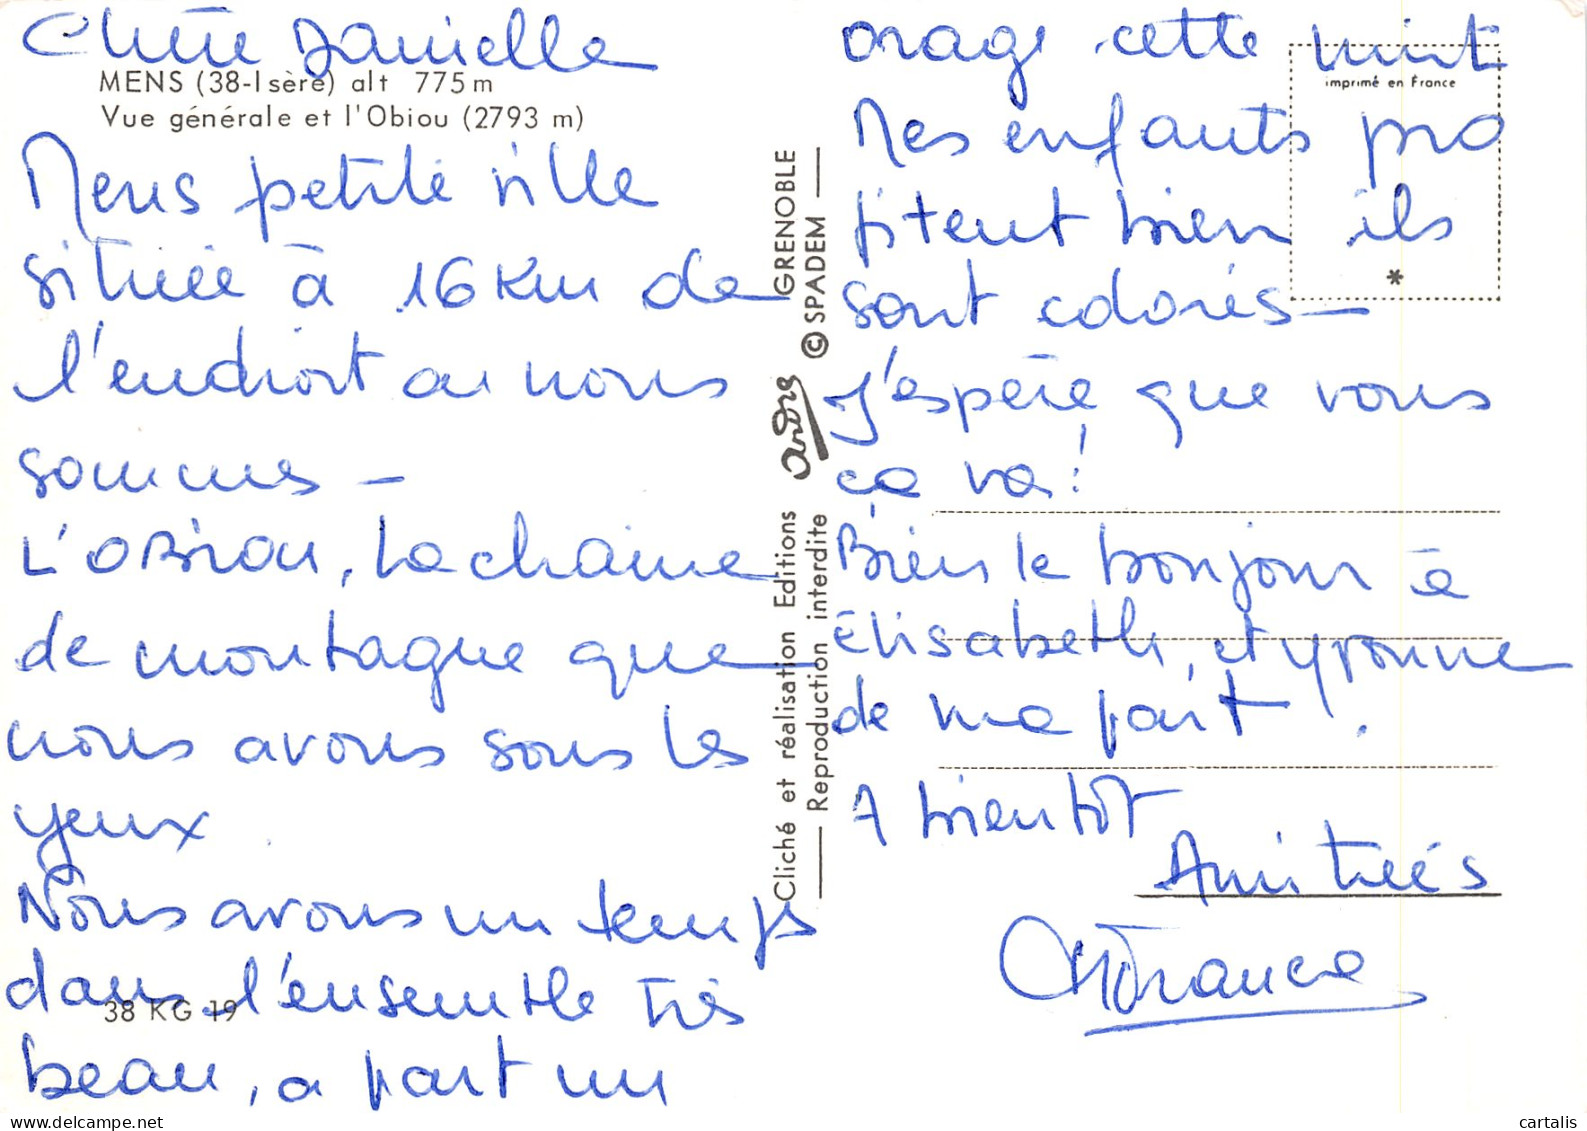 Chère Danielle
MENS (38-Isère) alt 775 m
Vue générale et l'Obiou (2793 m)
Mens petite ville
située à 16 Km de
l'endroit ou nous
sommes -
L'OBiou, la chaine
de montagne que
nous avons sous les
yeux
Nous avons un temps
dans l'ensemble très
38 KG 19
beau, a part un
Cliché et réalisation Editions André GRENOBLE
Reproduction interdite © SPADEM
imprimé en France
*
orage cette nuit
Mes enfants pro
fitent bien ils
sont colorés -
J'espère que vous
ça va !
Bien le bonjour à
Élisabeth, et yvonne
de ma part !.
A bientôt
Amitiés
France
cartalis